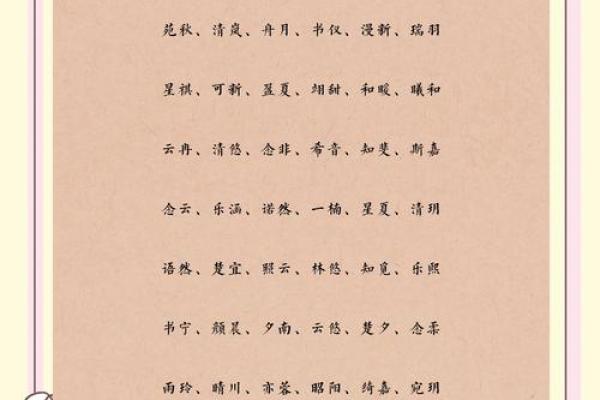 苑秋、清岚、舟月、书仪、漫新、瑞羽
星祺、可新、盈夏、翊甜、和暖、曦和
云冉、清悠、念非、希音、知斐、斯嘉
念云、乐涵、诺然、一楠、星夏、清玥
语然、楚宜、熙云、林悠、知觅、乐熙
书宁、颜晨、夕南、云悠、楚夕、念柔
雨玲、晴川、亦蓉、昭阳、绮嘉、宛玥